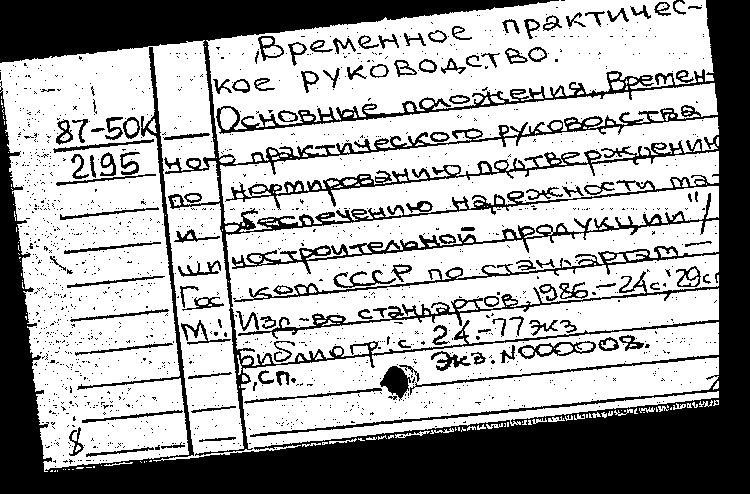 Временное практичес-
кое руководство.
87-50К
2195
Основные положения „Времен-
ного практического руководства
по нормированию, подтверждению
и обеспечению надежности ма-
шиностроительной продукции"/
Гос. ком. СССР по стандартам.—
М.: Изд-во стандартов, 1986.-24с.; 29см
Библиогр.: с. 24.-77 экз
Экз. N000008.
р, сп.
8